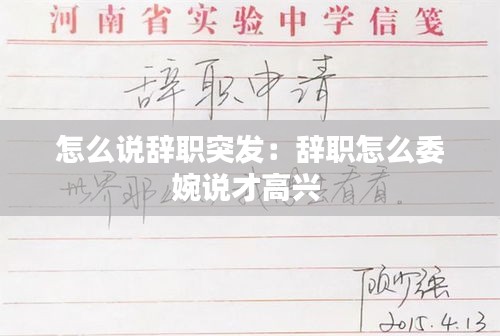 河南省实验中学信笺
辞职申请
怎么说辞职突发：辞职怎么委
婉说才高兴
世界那
去看看。
顾少强
2015.4.13